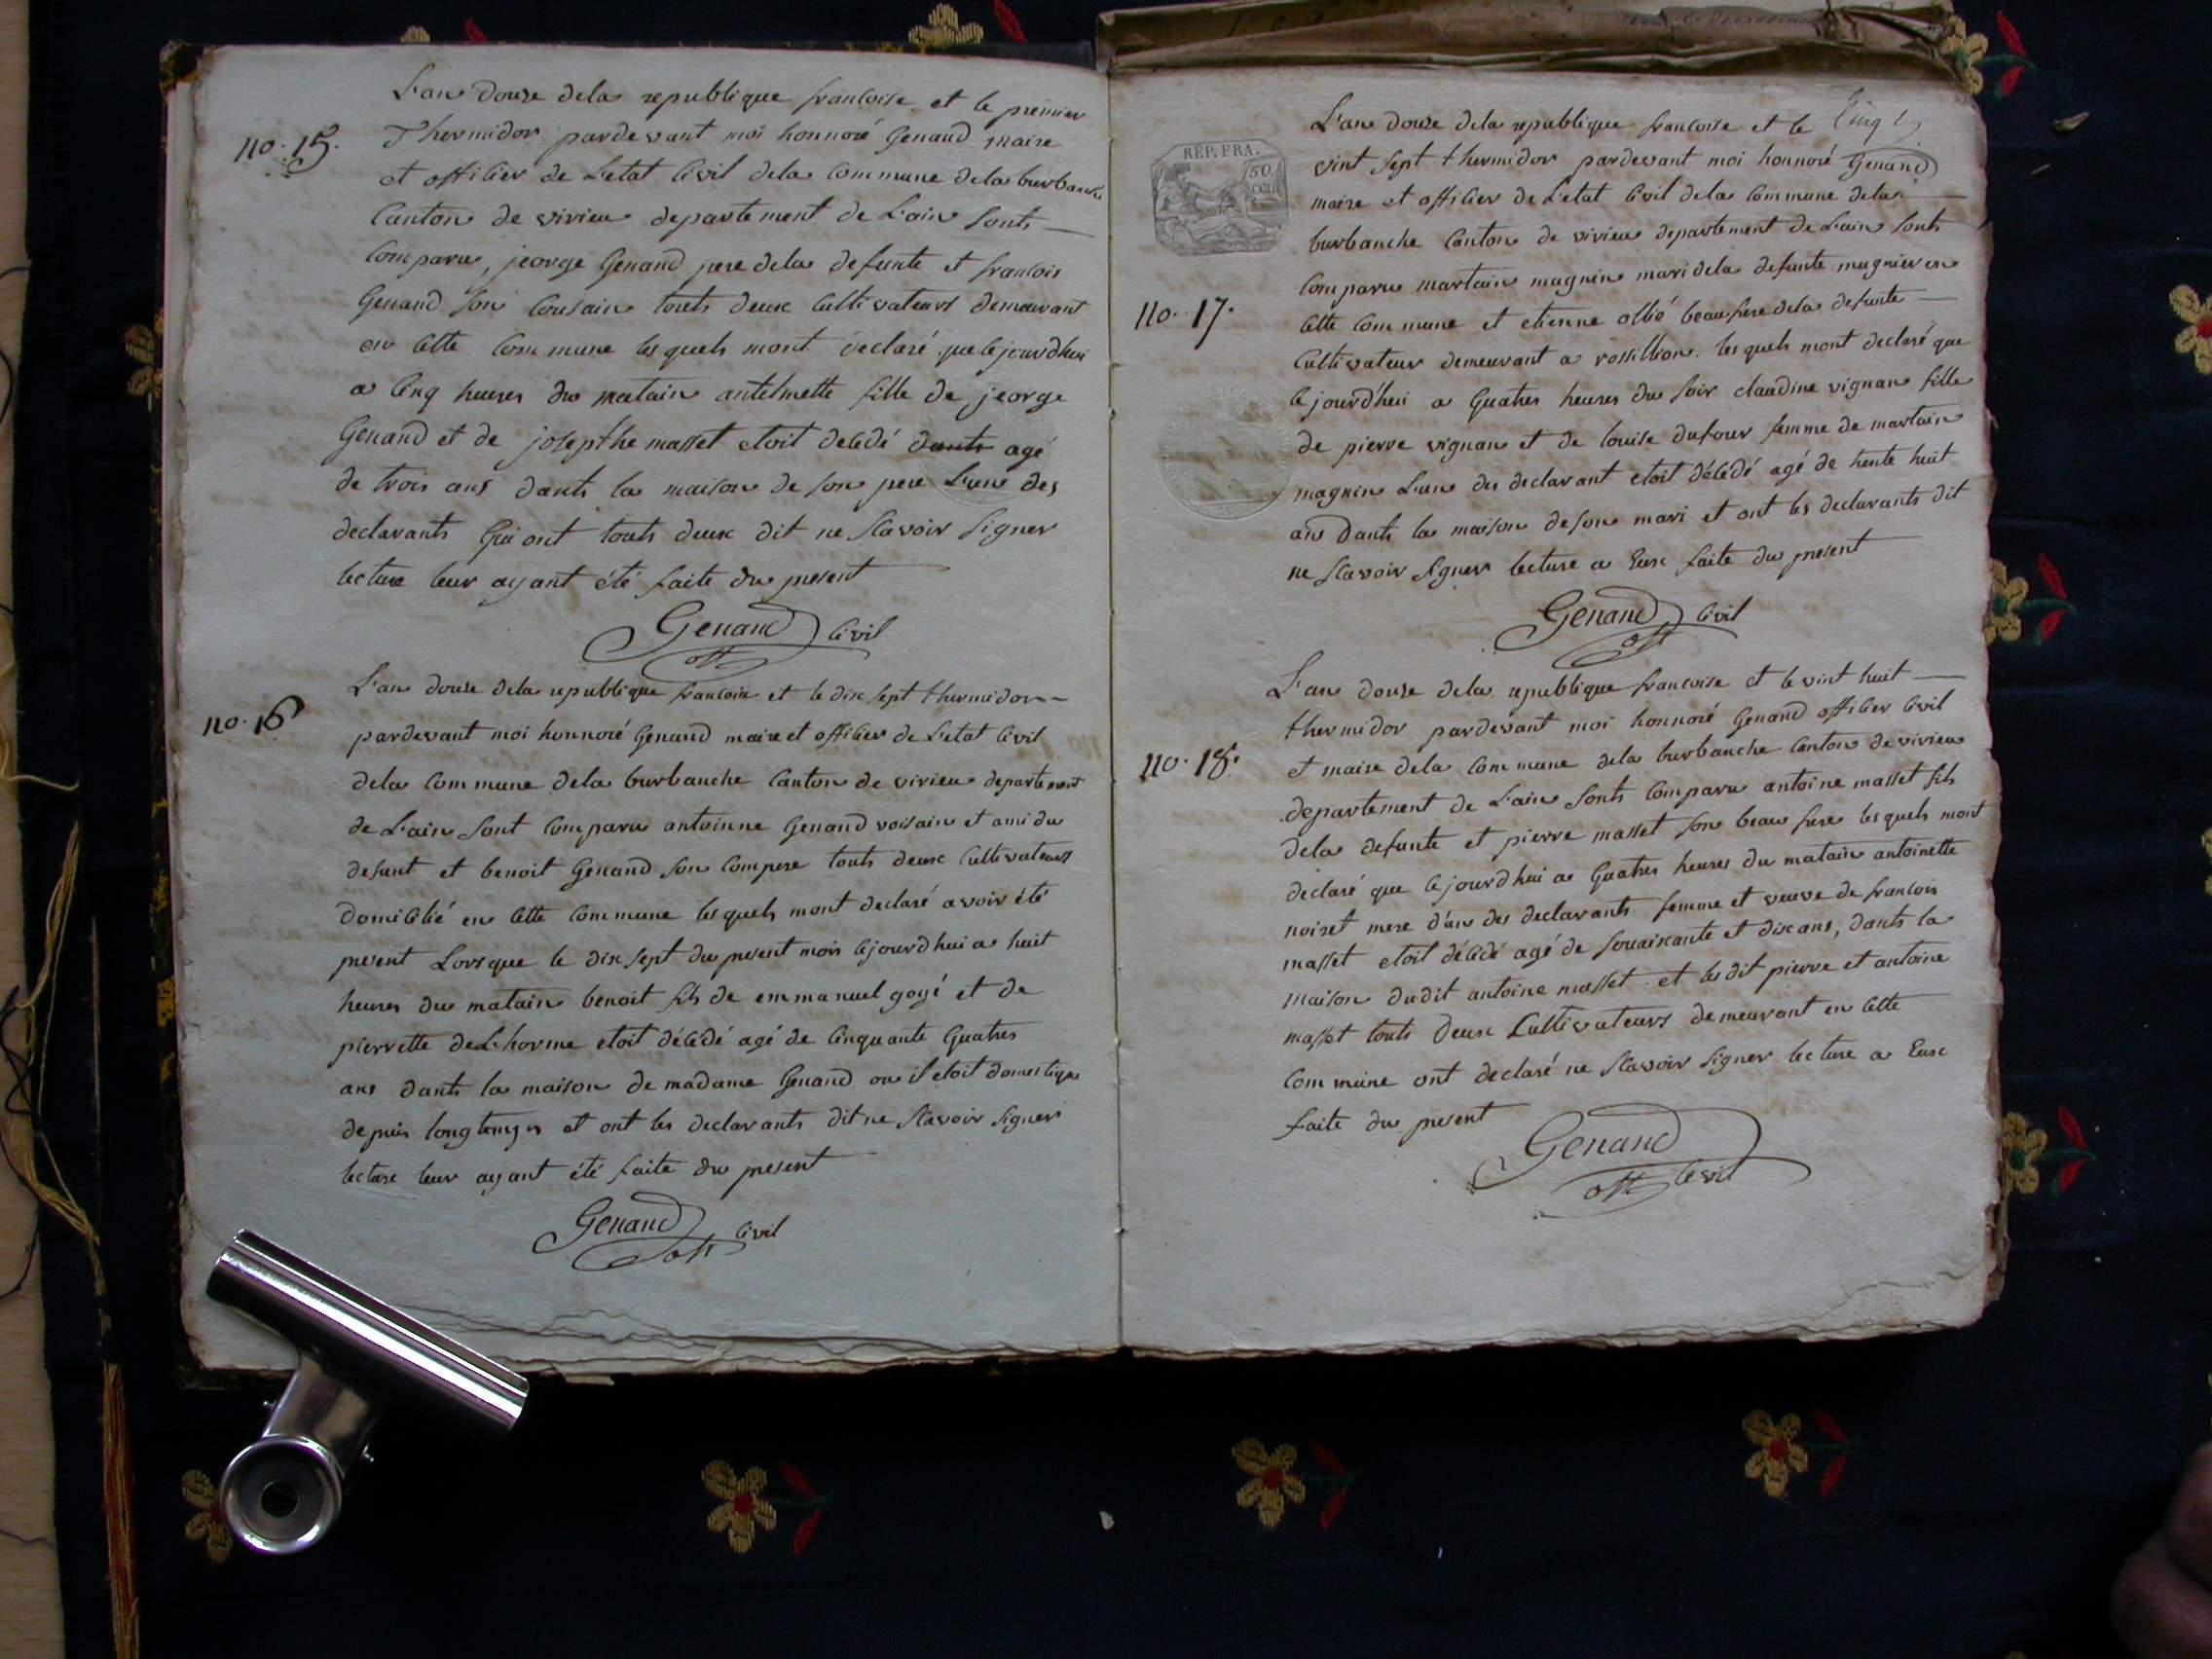 L'an douze dela republique francoise et le premier
no. 15.
Thermidor pardevant moi honnoré Genand maire
et officier de L'etat Civil dela Commune dela burbanche
Canton de virieu departement de L'ain sonts
Comparu, jeorge Genand pere dela defunte et francois
Genand son Cousain touts deux Cultivateurs demeurant
en Cette Commune lesquels mont declaré que cejourdhui
a Cinq heures du matain antelmette fille de jeorge
Genand et de josepthe masset etoit décédé dants agé
de trois ans dants la maison de son pere L'un des
declarants Qui ont touts deux dit ne Scavoir Signer
lecture leur ayant été faite du present
Genand off Civil
L'an douze dela republique francoise et le dix sept thermidor
no. 16
pardevant moi honnoré Genand maire et officier de L'etat Civil
dela Commune dela burbanche Canton de virieu departement
de L'ain Sont Comparu antoinne Genand voisain et ami du
defunt et benoit Genand Son Compere touts deux Cultivateurs
domicilié en Cette Commune lesquels mont declaré avoir été
present Lorsque le dix sept du present mois cejourdhui a huit
heures du matain benoit fils de emmanuel goyé et de
pierrette deLhorme etoit décédé agé de Cinquante Quatres
ans dants la maison de madame Genand ou il etoit domestique
depuis longtemps et ont les declarants dit ne Scavoir Signer
lecture leur ayant été faite du present
Genand off Civil
Cinq
REP. FRA.
50
L'an douze dela republique francoise et le
vint Sept thermidor pardevant moi honnoré Genand
maire et officier de L'etat Civil dela Commune dela
burbanche Canton de virieu departement de L'ain Sonts
Comparu martain magnin mari dela defunte magnier en
no. 17.
Cette Commune et etienne olbó beau frere dela defunte
Cultivateur demeurant a rossillion. lesquels mont declaré que
cejourd'hui a Quatres heures du Soir claudine vignan fille
de pierre vignan et de louise dufour femme de martain
magnin L'un des declarant etoit décédé agé de trente huit
ans Dants la maison de son mari et ont les declarants dit
ne Scavoir Signer lecture a Eux faite du present
Genand off Civil
L'an douze dela republique francoise et le vint huit
thermidor pardevant moi honnoré Genand officier Civil
no. 18.
et maire dela Commune dela burbanche Canton de virieu
departement de L'ain Sonts Comparu antoine masset fils
dela defunte et pierre masset Son beau frere lesquels mont
declaré que cejourdhui a Quatres heures du matain antoinette
noiret mere d'un des declarants femme et veuve de francois
masset etoit décédé agé de Souaixante et dix ans, dants la
maison dudit antoine masset et les dit pierre et antoine
masset touts Deux Cultivateurs demeurant en Cette
Commune ont declaré ne Scavoir Signer lecture a Eux
faite du present
Genand off Civil